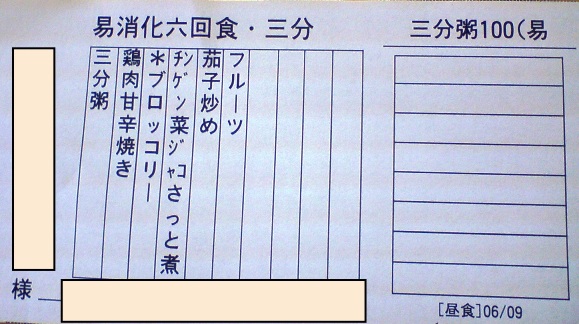 易消化六回食・三分
三分粥100(易
三分粥
鶏肉甘辛焼き
＊ブロッコリー
ﾁﾝｹﾞﾝ菜ｼﾞｬｺさっと煮
茄子炒め
フルーツ
様
[昼食]06/09